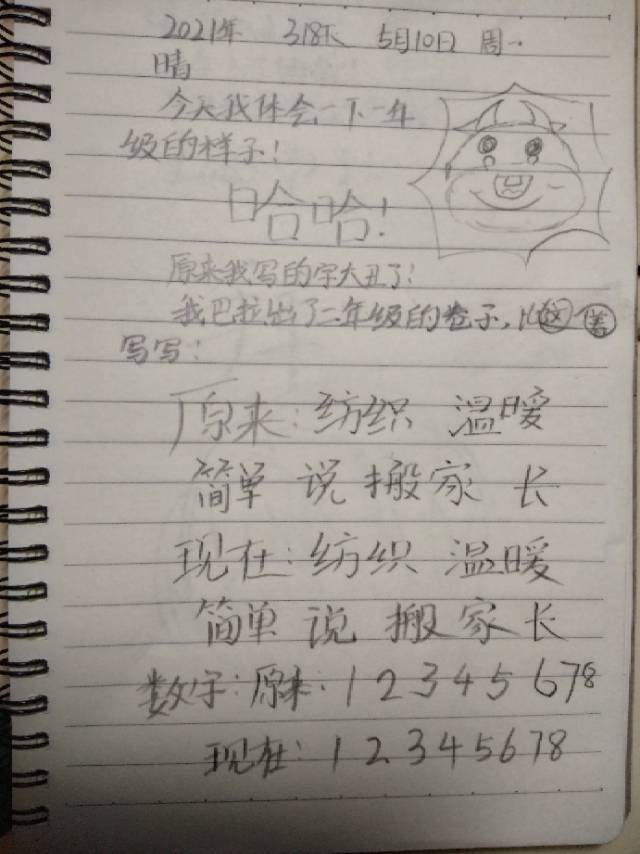 2021年 318天 5月10日 周一
晴
今天我体会一下一年
级的样子!
哈哈!
原来我写的字大丑了!
我巴拉出了二年级的卷子,比这
写写:
原来:纺织 温暖
简单 说 搬家 长
现在:纺织 温暖
简单 说 搬家 长
数字:原来:1 2 3 4 5 6 7 8
现在:1 2 3 4 5 6 7 8